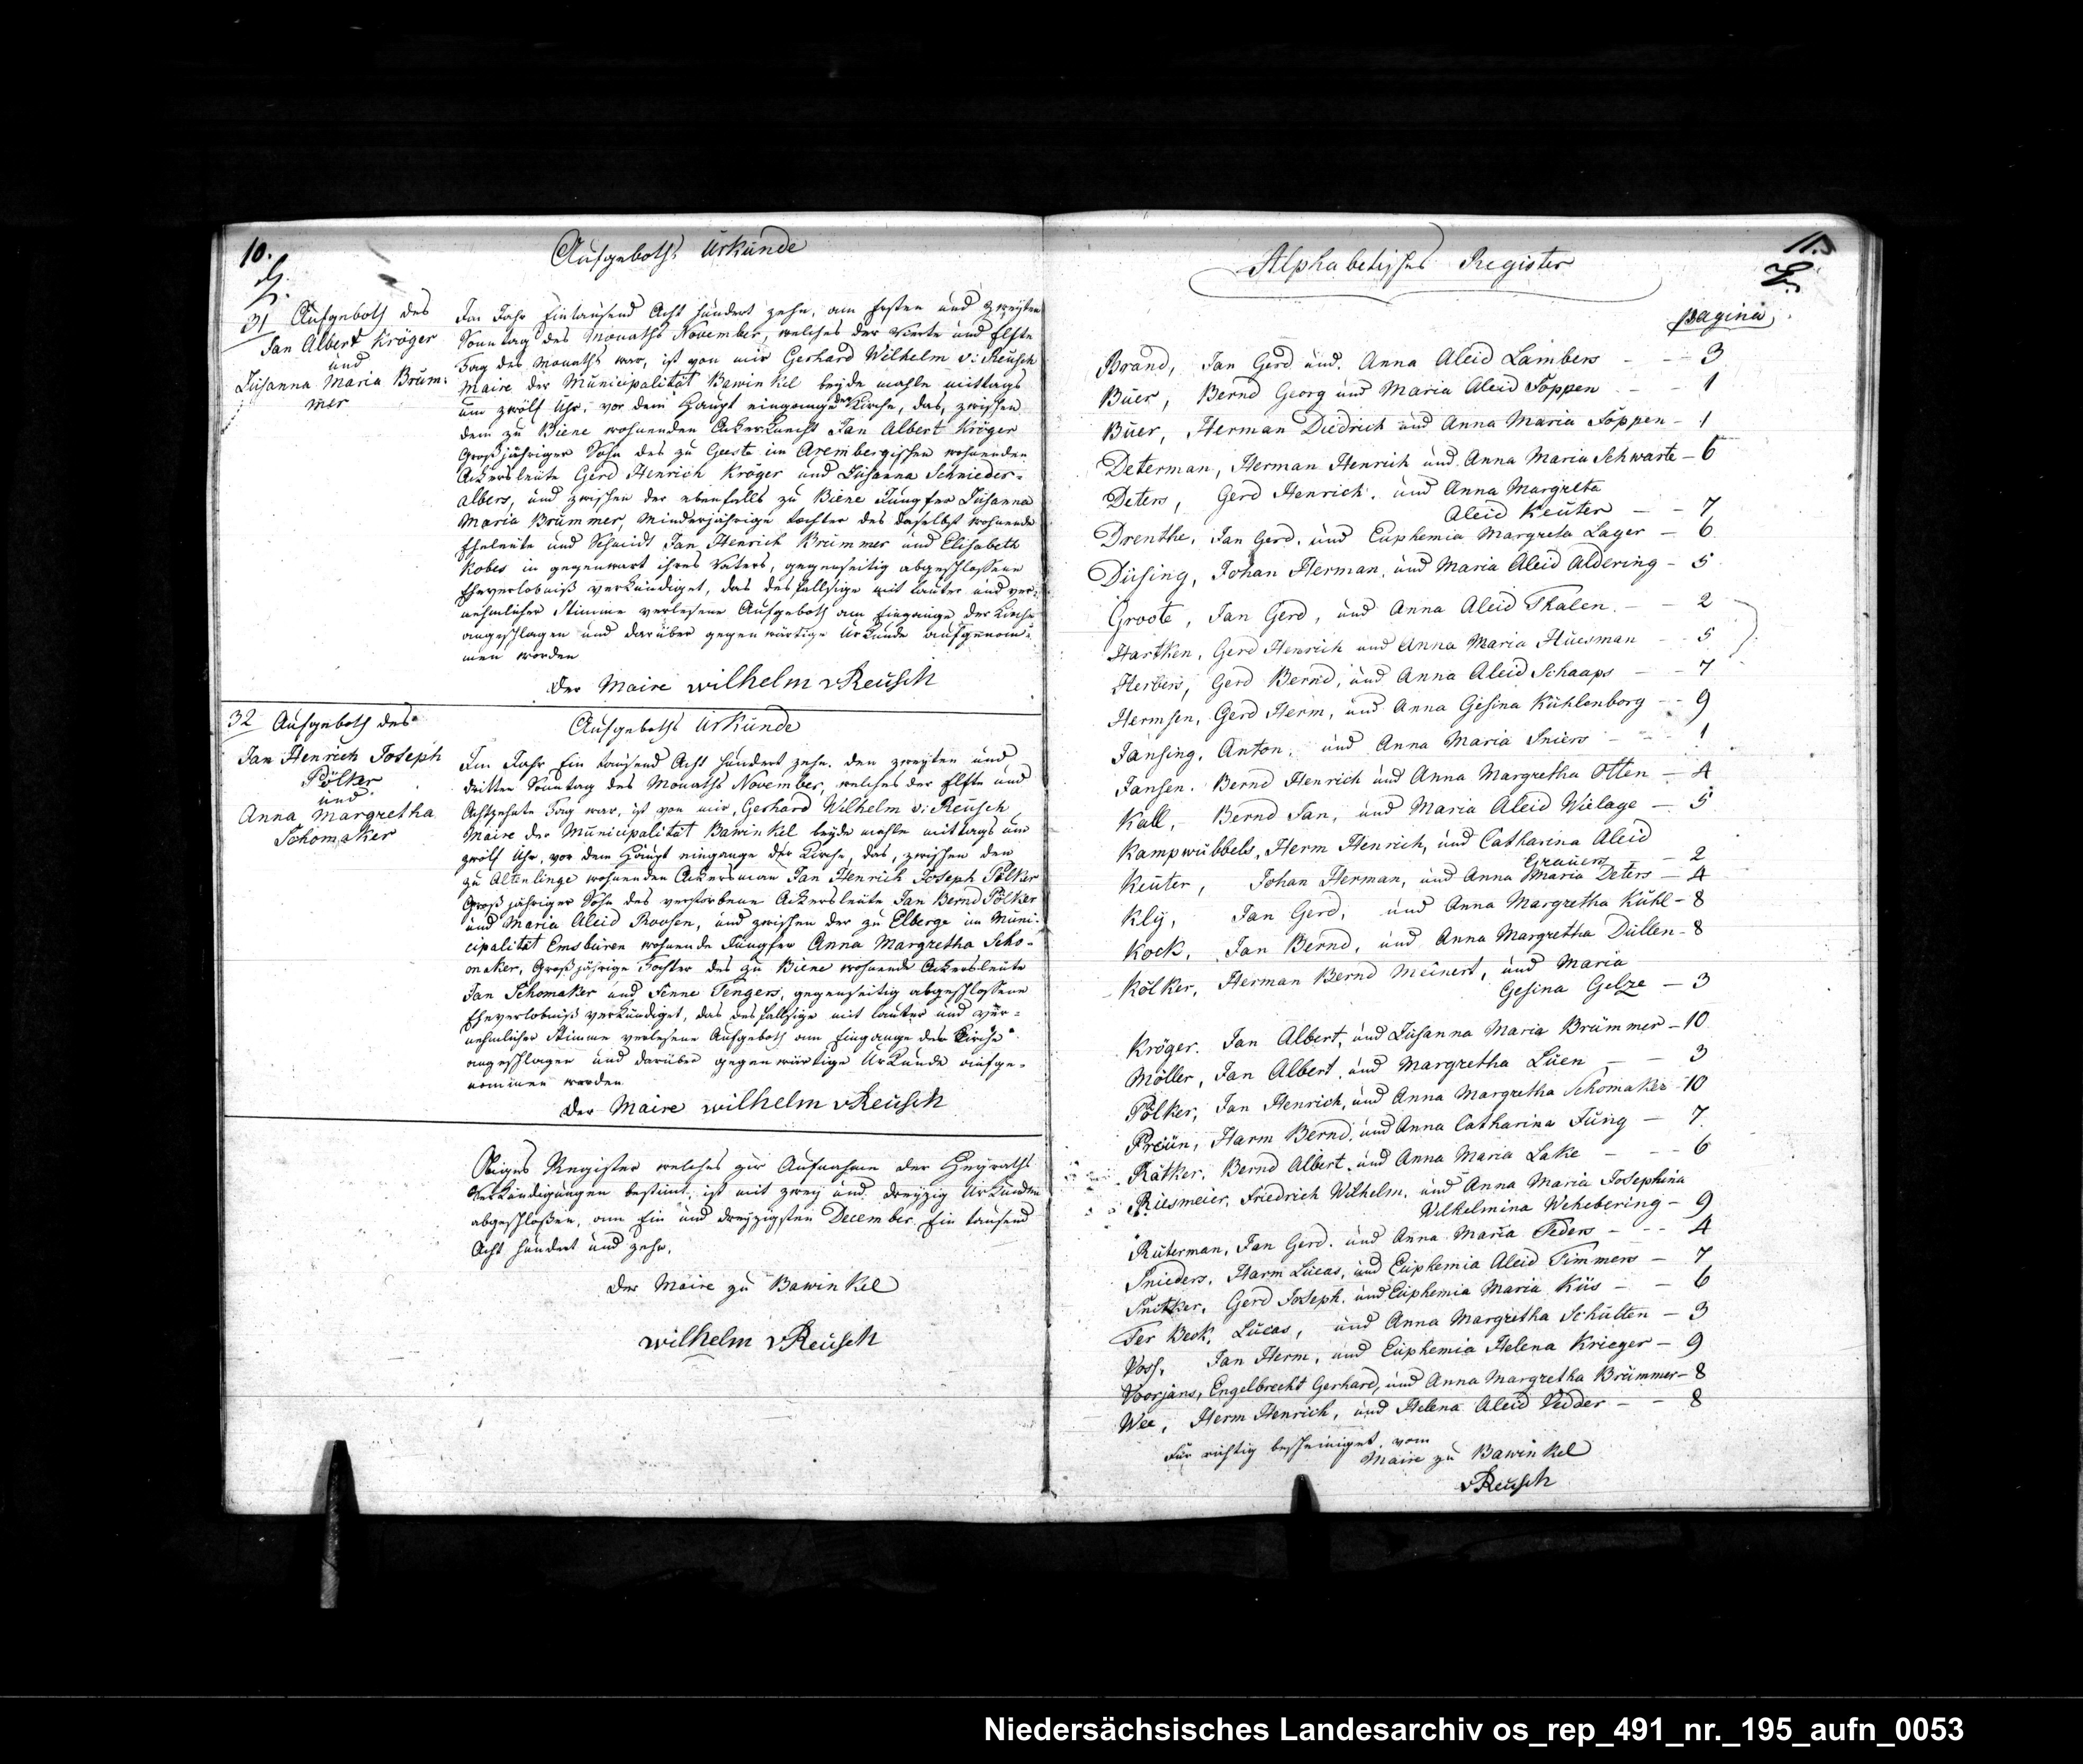 10.
Aufgeboths Urkunde
31 Aufgeboth des
Jan Albert Kröger
und
Susanna Maria Brüm:
mer
Im Jahr Eintausend Acht hundert zehn, am Ersten und Zweyten
Sonntag des Monaths November, welches der Vierte und Elfte
Tag des Monaths war, ist von mir Gerhard Wilhelm v: Reusch
Maire der Municipalität Bawinkel beyde mahle mittags
um zwölf Uhr, vor dem Haupt eingange der Kirche, das, zwischen
dem zu Biene wohnenden Ackerknecht Jan Albert Kröger
Großjähriger Sohn des zu Geeste im Arembergischen wohnenden
Ackersleute Gerd Henrich Kröger und Susanna Schnieder-
albers, und zwischen der ebenfalls zu Biene Jungfer Susanna
Maria Brümmer, Minderjährige tochter des daselbst wohnende
Eheleute und Schmidt Jan Henrich Brümmer und Elisabeth
Kobes in gegenwart ihres Vaters, gegenseitig abgeschlossene
Eheverlobniß verkündiget, das desfallsige mit lauter und ver-
nehmlicher Stimme verlesene Aufgeboth am Eingange der Kirche
angeschlagen und darüber gegenwärtige Urkunde aufgenom-
men worden
Der Maire Wilhelm vReusch
32 Aufgeboth des
Jan Henrich Joseph
Pölker
und
Anna Margretha
Schomaker
Aufgeboths Urkunde
Im Jahr Ein tausend Acht hundert zehn. den zweyten und
dritten Sonntag des Monaths November, welches der Elfte und
Achtzehnte Tag war, ist von mir, Gerhard Wilhelm v: Reusch
Maire der Municipalität Bawinkel beyde mahle mittags um
zwölf Uhr, vor dem Haupt eingange der Kirche, das, zwischen den
zu Altenlinge wohnenden Ackersman Jan Henrich Joseph Pölker
Großjähriger Sohn des verstorbene Ackersleute Jan Bernd Pölker
und Maria Aleid Roosen, und zwischen der zu Elberge im Muni-
cipalität Emsbüren wohnende Jungfer Anna Margretha Scho-
maker, Großjährige Tochter des zu Biene wohnende Ackersleute
Jan Schomaker und Fenne Tengers, gegenseitig abgeschlossene
Eheverlobniß verkündiget, das desfallsige mit lauter und ver-
nehmlicher Stimme verlesene Aufgeboth am Eingange der Kirche
angeschlagen und darüber gegenwärtige Urkunde aufge-
nommen worden
Der Maire Wilhelm vReusch
Obiges Register welches zur Aufnahme der Heyraths
Verkündigungen bestimt, ist mit zwey und dreyzig Urkunden
abgeschloßen, am Ein und dreyzigsten December Ein tausend
Acht hundert und zehn.
Der Maire zu Bawinkel
Wilhelm vReusch
11.
Alphabetisches Register
pagina
Brand, Jan Gerd und Anna Aleid Lambers - - 3
Büer, Bernd Georg und Maria Aleid Foppen - - 1
Büer, Herman Diedrich und Anna Maria Foppen - 1
Determan, Herman Henrich und Anna Maria Schwarte - 6
Deters, Gerd Henrich, und Anna Margreta
Aleid Keuter - - 7
Drenthe, Jan Gerd, und Euphemia Margreta Lager - 6
Düsing, Johan Herman, und Maria Aleid Aldering - 5
Groote, Jan Gerd, und Anna Aleid Thalen - - 2
Hartken, Gerd Henrich und Anna Maria Hüesman - - 5
Herbers, Gerd Bernd, und Anna Aleid Schaaps - - 7
Hermsen, Gerd Herm, und Anna Gesina Kühlenborg - - 9
Jansing, Anton, und Anna Maria Sniers - - - 1
Jansen, Bernd Henrich und Anna Margretha Otten - 4
Kall, Bernd Jan, und Maria Aleid Wielage - 5
Kampwübbels, Herm Henrich, und Catharina Aleid
Grauers - 2
Keuter, Johan Herman, und Anna Maria Deters - 4
Klÿ, Jan Gerd, und Anna Margretha Kühl - 8
Kock, Jan Bernd, und Anna Margretha Düllen - 8
Kölker, Herman Bernd Meinert, und Maria
Gesina Gelze - 3
Kröger, Jan Albert, und Susanna Maria Brümmer - 10
Möller, Jan Albert, und Margretha Lüen - - 3
Pölker, Jan Henrich, und Anna Margretha Schomaker - 10
Preün, Harm Bernd, und Anna Catharina Jüng - 7
Rätker, Bernd Albert, und Anna Maria Lake - - - 6
Riesmeier, Friedrich Wilhelm, und Anna Maria Josephina
Wilhelmina Wehebering - 9
Rüterman, Jan Gerd, und Anna Maria Feders - - - 4
Snieders, Harm Lücas, und Euphemia Aleid Timmers - 7
Snitker, Gerd Joseph, und Euphemia Maria Küs - - 6
Ter Beek, Lücas, und Anna Margretha Schulten - 3
Voss, Jan Herm, und Euphemia Helena Krieger - 9
Voorjans, Engelbrecht Gerhard, und Anna Margretha Brümmer - 8
Wee, Herm Henrich, und Helena Aleid Vedder - - 8
Für richtig bescheiniget vom
Maire zu Bawinkel
vReusch
Niedersächsisches Landesarchiv os_rep_491_nr._195_aufn_0053